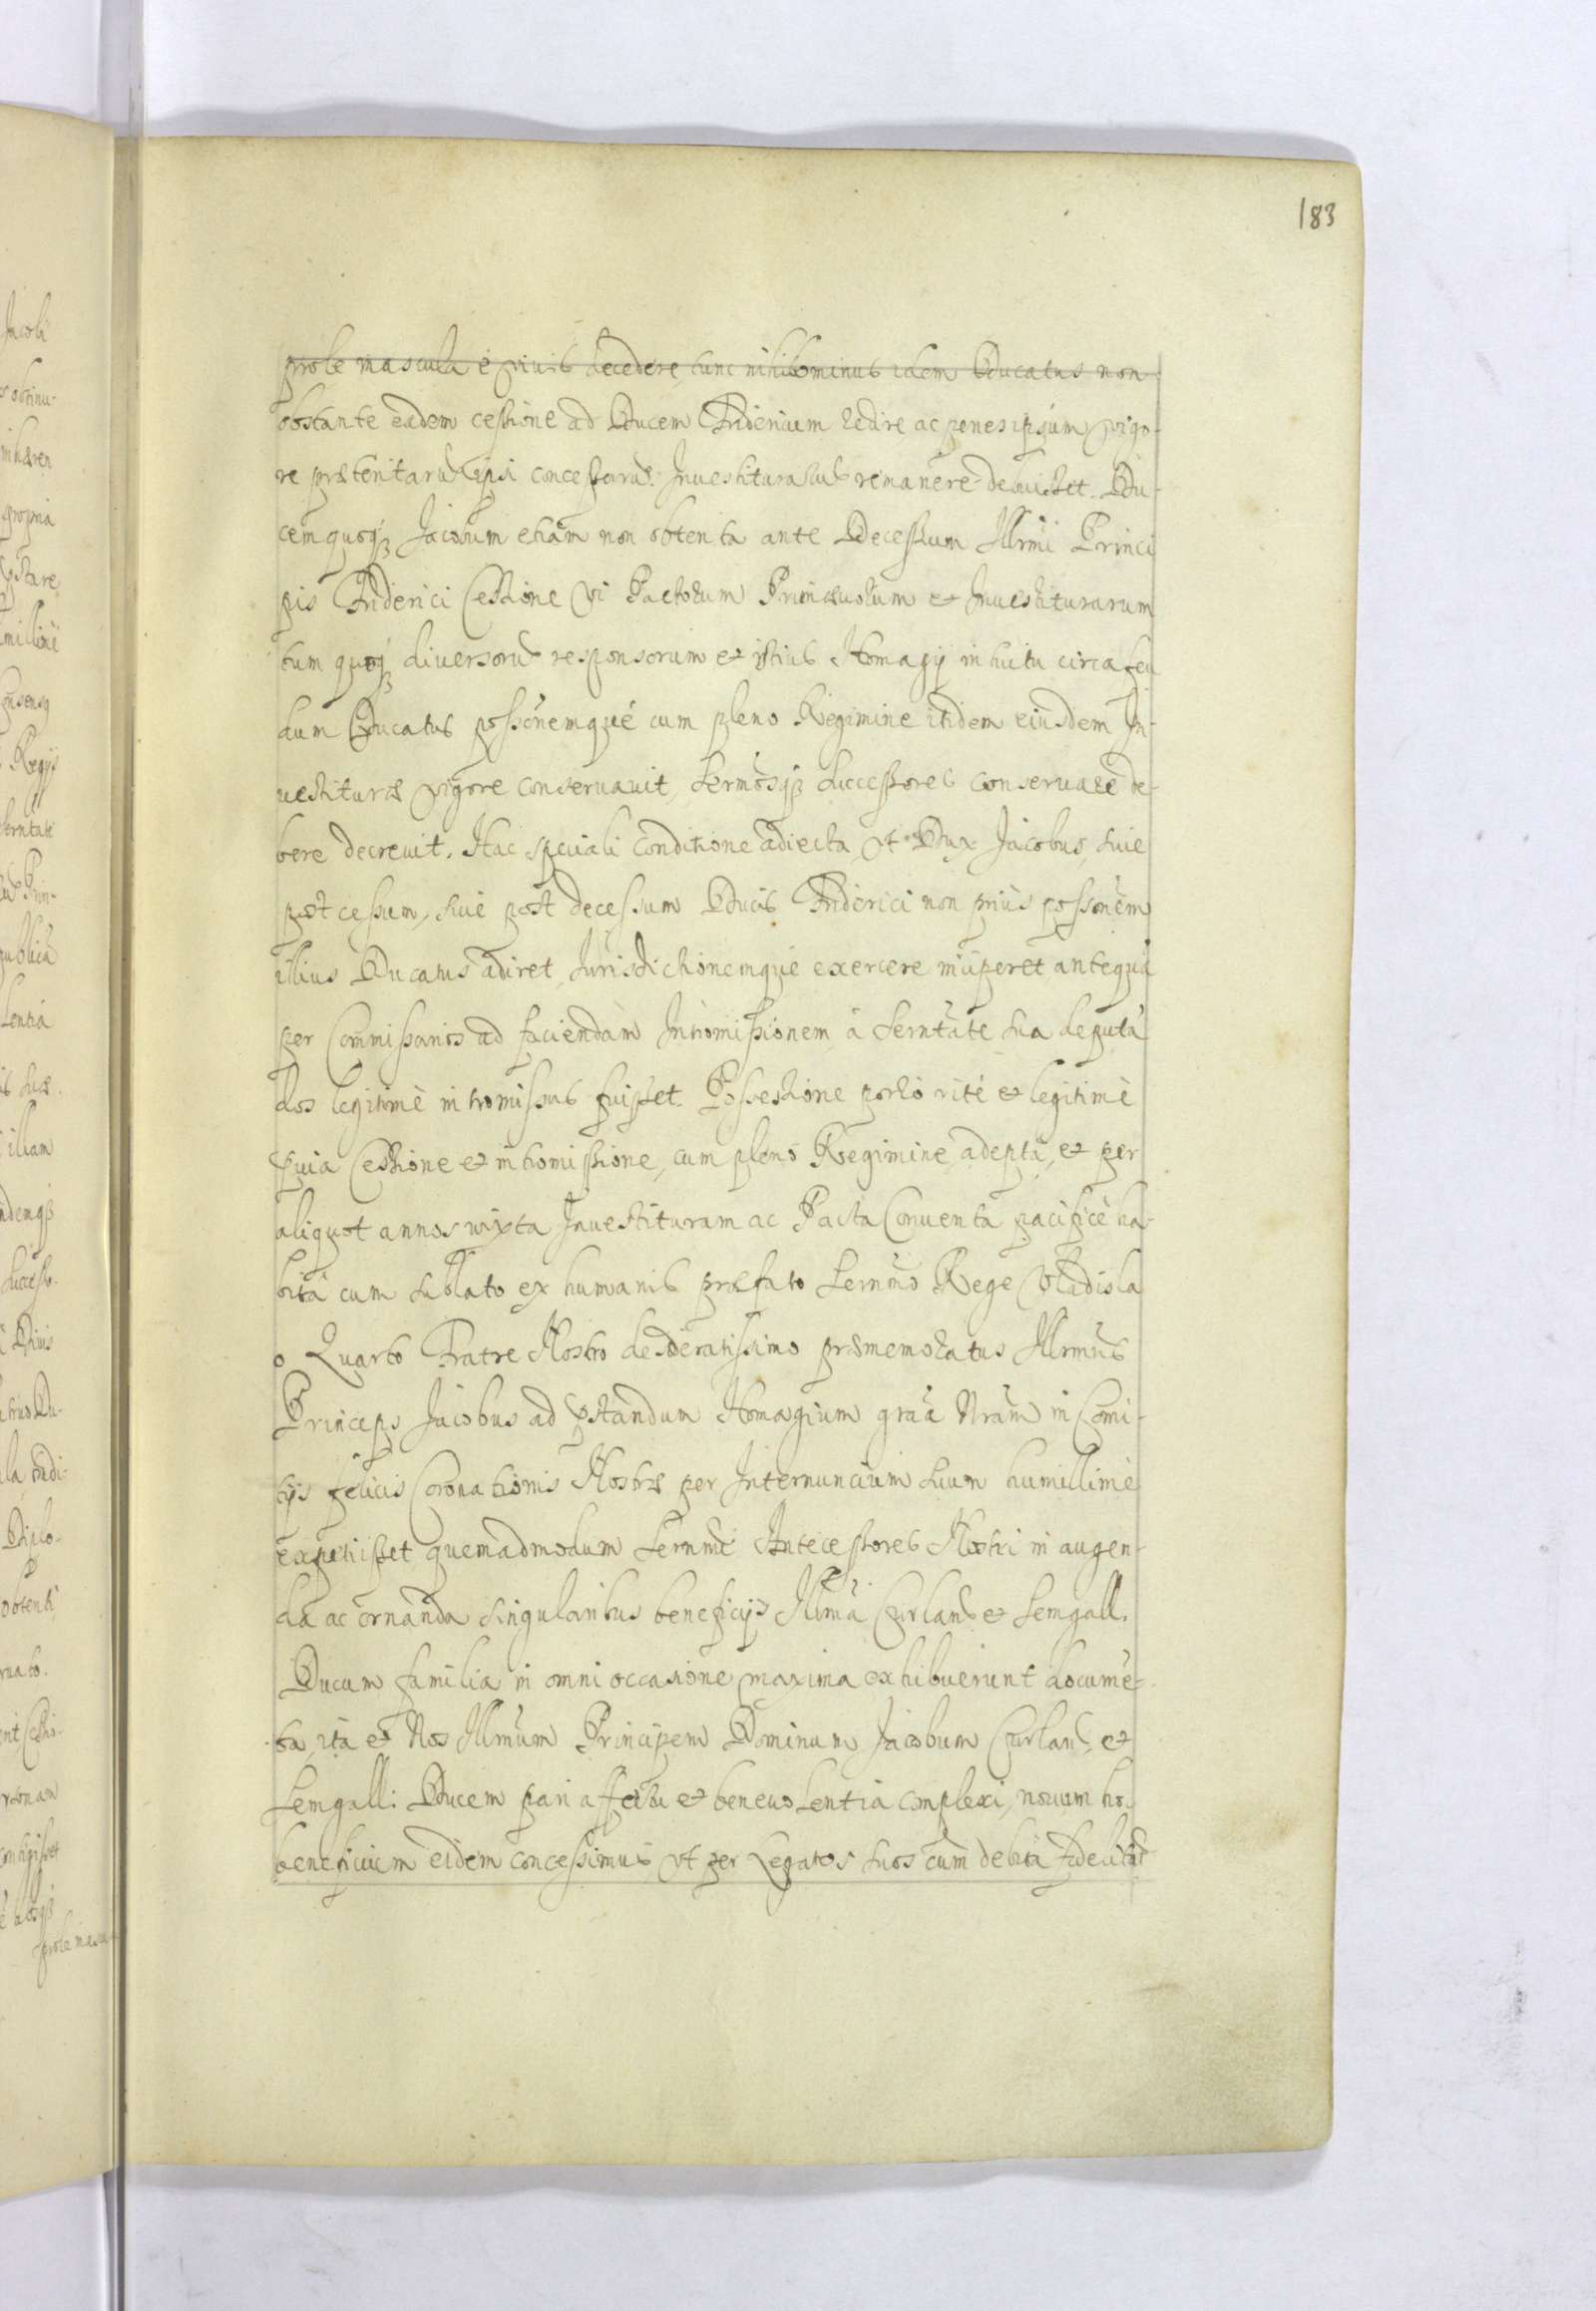 183
prole mascula è viuis decedere, tunc nihilominus idem Ducatus non
obstante eadem cessione ad Ducem Fridericum redire ac penes ipsum vigo-
re ipsi concessarũ Inuestituratum remanere debuisset. Du-
cem quoq Jacobum etiam non obtenta ante Decessum Illrmi Princi
pis Friderici Cessione vi Pactorum Primæuorum et Inuestiturarum
tum quoq diuersorũ responsorum et istius Homagij intuitu circa feu
dum Ducatus possõnemque cum pleno Regimine itidem eiusdem In-
uestituræ vigore conseruauit, Sermosq Successores conseruare de-
bere decreuit. Hac speciali Conditione adiecta, vt Dux Jacobus, siue
post cessum, siue post decessum Ducis Friderici non prius possonem
illius Ducatus adiret, Jurisdictionemque exercere inciperet antequã
per Commissarios ad faciendam Intromissionem à Serntate sua deputa
dos legitimè intromissus fuisset. Possessione porro ritè et legitimè
Cessione et intromissione, cum pleno Regimine, adepta, et per
aliquot annos iuxta Inuestituram ac Pacta Conuenta pacificè ha-
bita cum sublato ex humanis præfato Sernmo Rege Vladisla
o Quarto Fratre Nostro desideratissimo præmemoratus Illrmus
Princeps Jacobus ad pstandum Homagium graã Nram in Comi-
tijs felicis Coronationis Nostræ per Internuncium suum humillimè
expetijsset quemadmodum Sernmi Antecessores Nostri in augen-
da ac ornanda singularibus beneficijs Illmã Curland et Semgall.
Ducum familia in omni occasione maxima exhibuerunt documẽ-
ta, ita et Nos Illmum Principem Dominum Jacobum Curland, et
Semgall: Ducem pari affectu et beneuolentia complexi, nouum hoc
beneficium eidem concessimus, vt per Legatos suos cum debita fidelitat